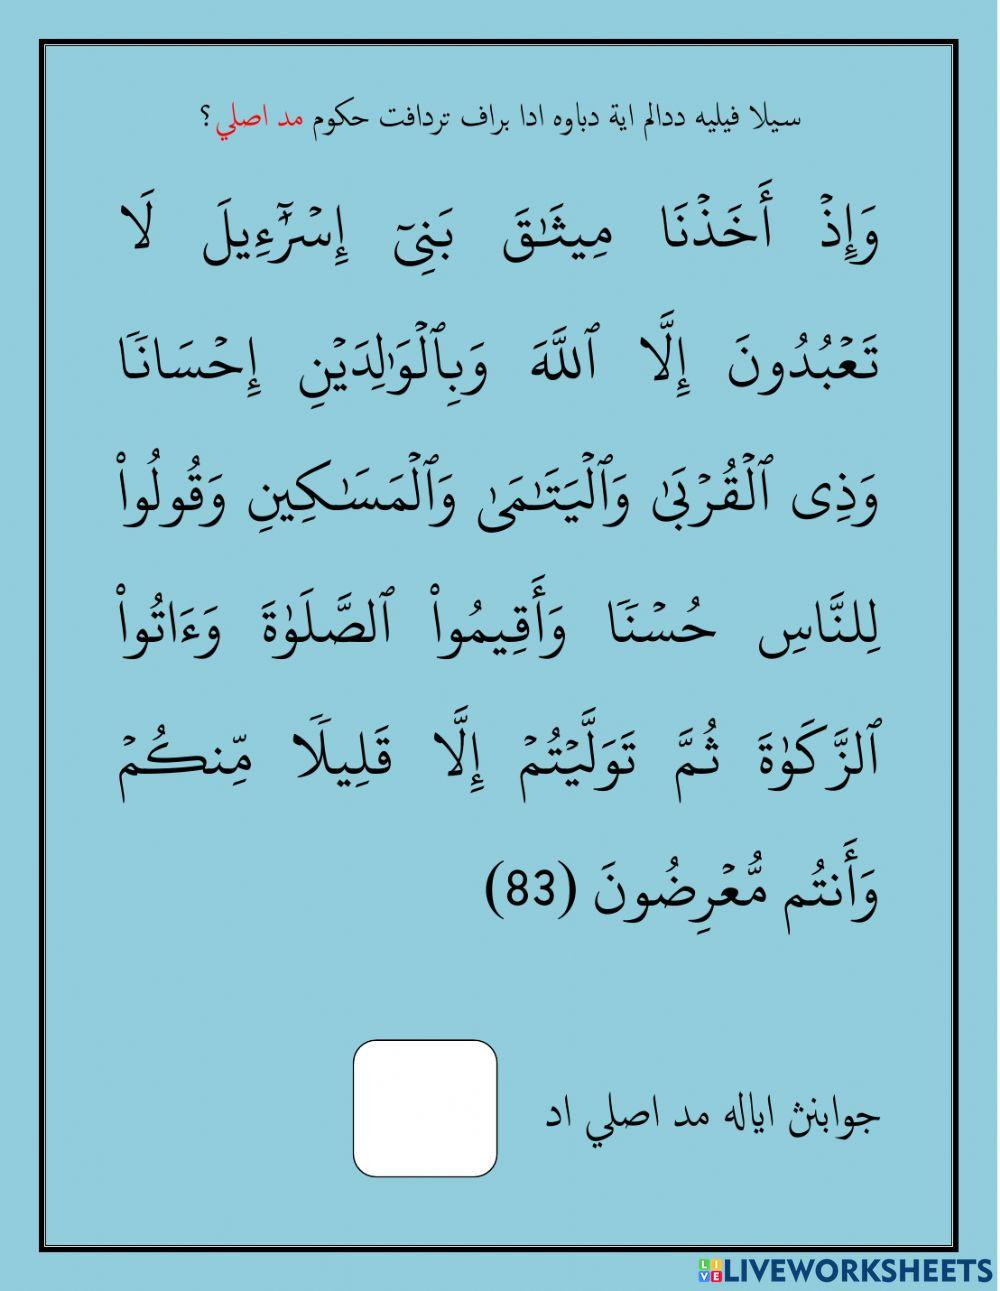 سيلا فيليه ددالم اية دباوه ادا براف تردافت حكوم مد اصلي؟
وَإِذۡ أَخَذۡنَا مِيثَٰقَ بَنِيٓ إِسۡرَٰٓءِيلَ لَا
تَعۡبُدُونَ إِلَّا ٱللَّهَ وَبِٱلۡوَٰلِدَيۡنِ إِحۡسَانٗا
وَذِى ٱلۡقُرۡبَىٰ وَٱلۡيَتَٰمَىٰ وَٱلۡمَسَٰكِينِ وَقُولُواْ
لِلنَّاسِ حُسۡنٗا وَأَقِيمُواْ ٱلصَّلَوٰةَ وَءَاتُواْ
ٱلزَّكَوٰةَ ثُمَّ تَوَلَّيۡتُمۡ إِلَّا قَلِيلٗا مِّنكُمۡ
وَأَنتُم مُّعۡرِضُونَ (83)
جوابنڽ اياله مد اصلي اد
LIVEWORKSHEETS